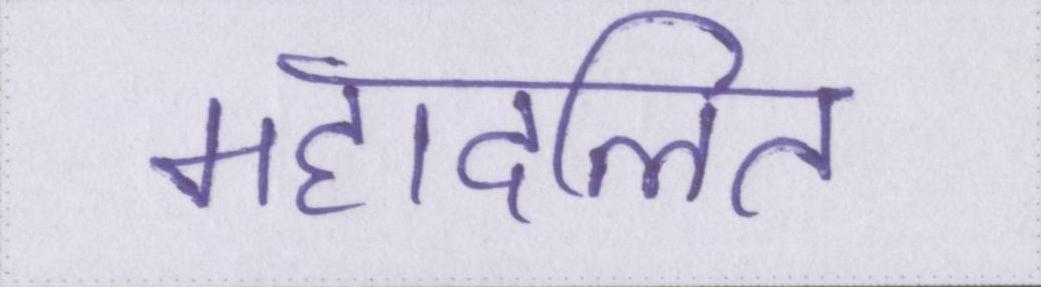 महादलित